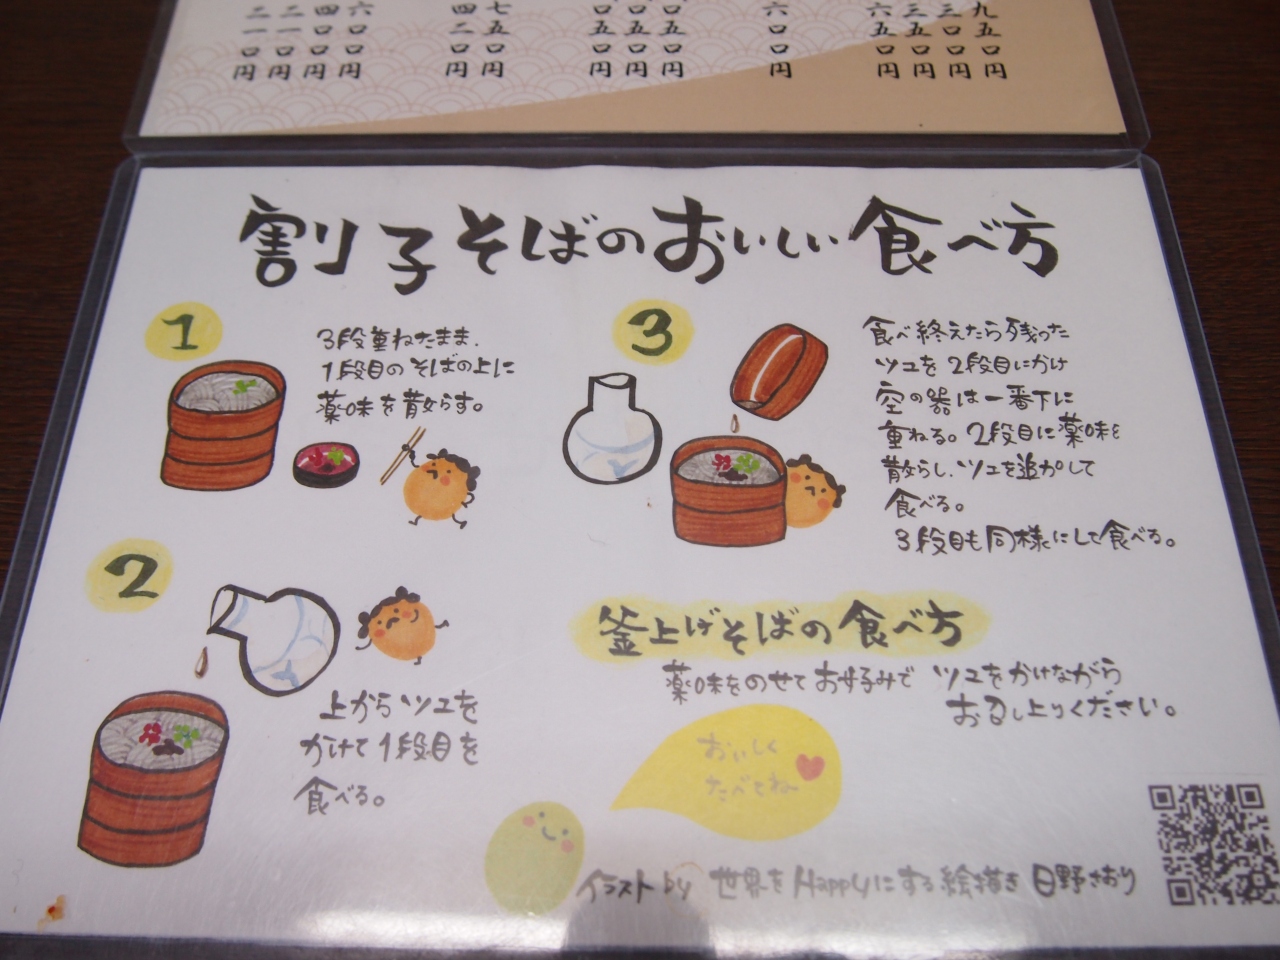 二一〇円
二一〇円
四〇〇円
六〇〇円
四二〇円
七五〇円
〇五〇円
〇五〇円
〇五〇円
六〇〇円
六五〇円
三五〇円
三〇〇円
九五〇円
割子そばのおいしい食べ方
1
3段重ねたまま、
1段目のそばの上に
薬味を散らす。
2
上からツユを
かけて1段目を
食べる。
3
食べ終えたら残った
ツユを2段目にかけ
空の器は一番下に
重ねる。2段目に薬味を
散らし、ツユを追加して
食べる。
3段目も同様にして食べる。
釜上げそばの食べ方
薬味をのせてお好みで ツユをかけながら
お召し上りください。
おいしく
たべてね
イラスト by 世界をHappyにする絵描き 日野さおり